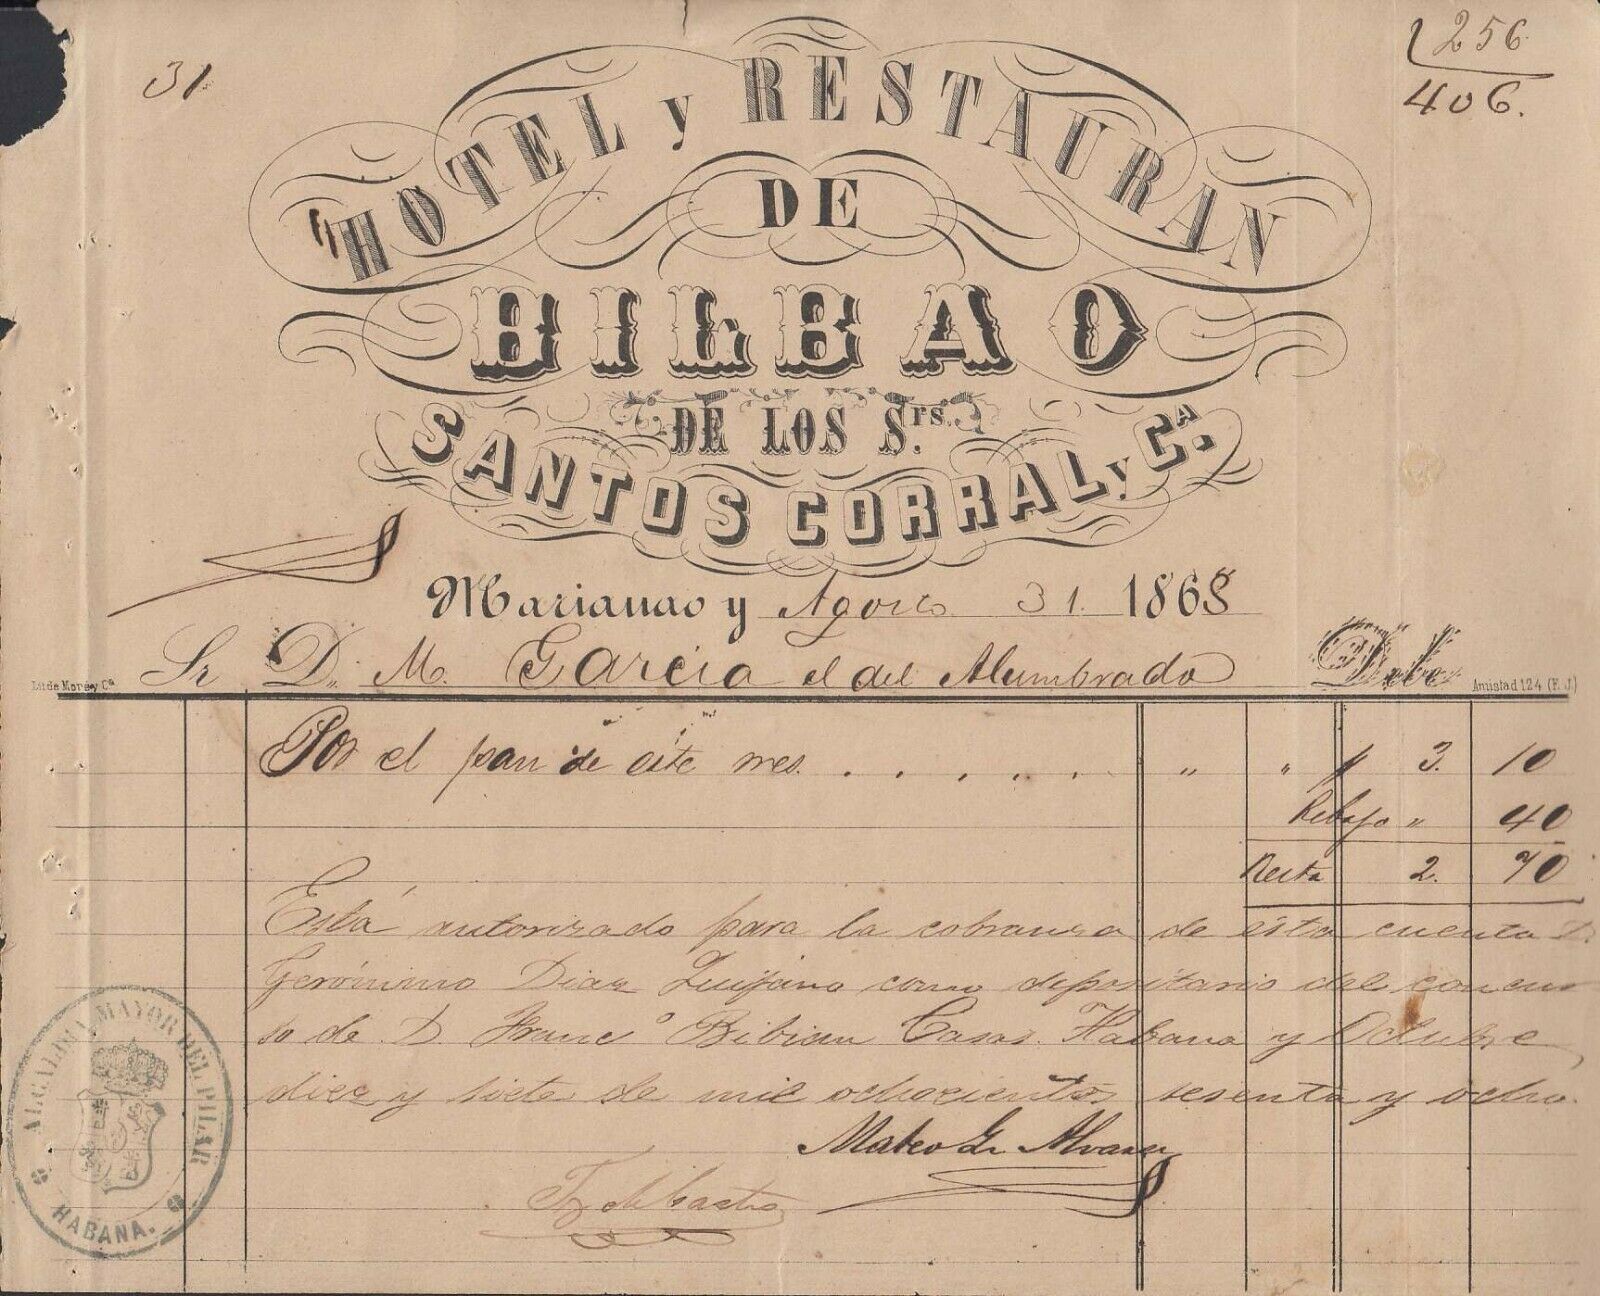 31
256
406.
HOTEL y RESTAURAN
DE
BILBAO
DE LOS Srs.
SANTOS CORRAL y Cª.
Marianao y Agosto 31. 1868
Sr D. M. Garcia el del Alumbrado Debe
Lit de More y Cª Amistad 124 (F. J.)
Por el pan de este mes. . . . . . . " " p 3. 10
Rebajo " 40
Resta 2. 70
Está autorizado para la cobranza de esta cuenta D.
Gerónimo Diaz Quijano como depositario del concur
so de D. Francº Bibian Casas. Habana y Octubre
diez y siete de mil ochocientos sesenta y ocho.
Mateo G. Alvarez
ALCALDIA MAYOR DEL PILAR
HABANA.